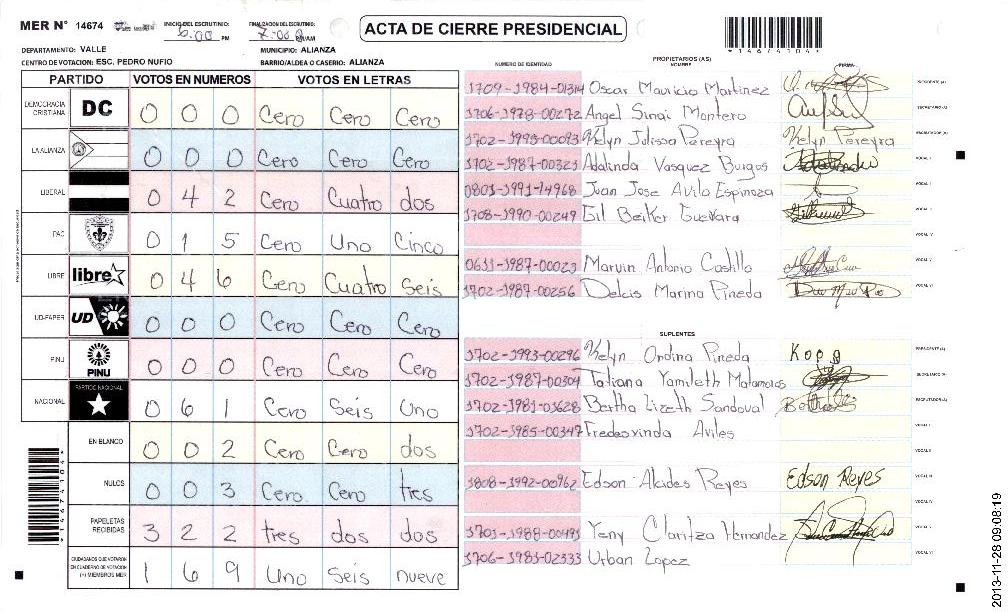 MER N° 14674
INICIO DEL ESCRUTINIO: 6:00 PM
FINALIZACION DEL ESCRUTINIO: 7:00 PM/AM
ACTA DE CIERRE PRESIDENCIAL
*14674104*
DEPARTAMENTO: VALLE MUNICIPIO: ALIANZA
CENTRO DE VOTACION: ESC. PEDRO NUFIO BARRIO/ALDEA O CASERIO: ALIANZA
PARTIDO VOTOS EN NUMEROS VOTOS EN LETRAS
DEMOCRACIA CRISTIANA DC 0 0 0 Cero Cero Cero
LA ALIANZA 0 0 0 Cero Cero Cero
LIBERAL 0 4 2 Cero Cuatro dos
PAC 0 1 5 Cero Uno Cinco
LIBRE libre 0 4 6 Cero Cuatro Seis
UD-FAPER UD 0 0 0 Cero Cero Cero
PINU PINU 0 0 0 Cero Cero Cero
NACIONAL PARTIDO NACIONAL 0 6 1 Cero Seis Uno
EN BLANCO 0 0 2 Cero Cero dos
NULOS 0 0 3 Cero Cero tres
PAPELETAS RECIBIDAS 3 2 2 tres dos dos
CIUDADANOS QUE VOTARON EN CUADERNO DE VOTACION (+) MIEMBROS MER 1 6 9 Uno Seis nueve
*14674104*
NUMERO DE IDENTIDAD PROPIETARIOS (AS) NOMBRE FIRMA
1709-1984-01314 Oscar Mauricio Martinez PRESIDENTE (A)
1706-1978-00272 Angel Sinai Montero SECRETARIO (A)
1702-1995-00093 Kelyn Julissa Pereyra Kelyn Pereyra ESCRUTADOR (A)
1702-1987-00321 Adalinda Vasquez Burgos VOCAL I
0801-1991-14968 Juan Jose Avila Espinoza VOCAL II
1708-1990-00249 Gil Beiker Guevara
VOCAL IV
0611-1987-00023 Marvin Antonio Castillo VOCAL V
1702-1987-00256 Delcis Marina Pineda VOCAL VI
SUPLENTES
1702-1993-00296 Kelyn Ondina Pineda PRESIDENTE (A)
1702-1987-00304 Tatiana Yamileth Matamoros SECRETARIO (A)
1702-1981-01628 Bertha Lizeth Sandoval ESCRUTADOR (A)
1702-1985-00347 Fredesvinda Aviles VOCAL I
VOCAL II
1808-1992-00962 Edson Alcides Reyes Edson Reyes VOCAL III
VOCAL IV
1701-1988-00491 Yeny Claritza Hernandez VOCAL V
1706-1983-02333 Urban Lopez VOCAL VI
2013-11-28 09:08:19